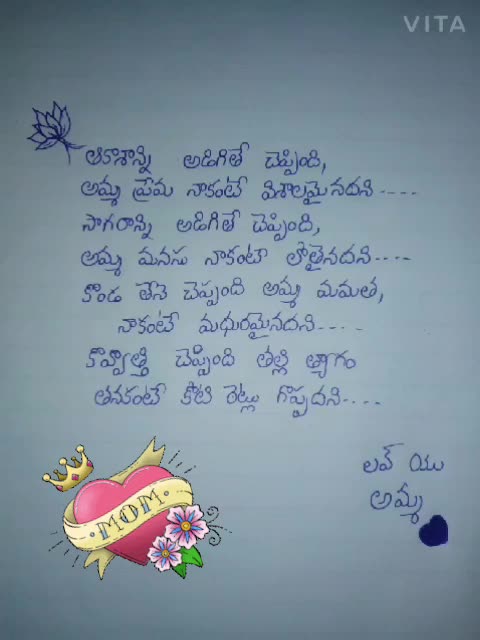 VITA
ఆకాశాన్ని అడిగితే చెప్పింది,
అమ్మ ప్రేమ నాకంటే విశాలమైనదని ----
సాగరాన్ని అడిగితే చెప్పింది,
అమ్మ మనసు నాకంటే లోతైనదని ----
కొండ తేనె చెప్పంది అమ్మ మమత,
నాకంటే మధురమైనదని ----
కొవ్వొత్తి చెప్పింది తల్లి త్యాగం
తనకంటే కోటి రెట్లు గొప్పదని ----
లవ్ యు
అమ్మ
MOM